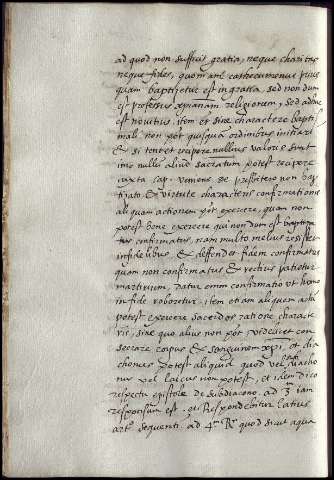 ad quod non sufficit gratia, neque charitas
neque fides, quoniam cathecumenus prius
quam baptizetur est in gratia, sed non dum
est professus xpianam religionem, sed adhuc
est novitius. item et sine charactere bapti
mali non pōt quisquam ordinibus initiari
& si tentet recipere nullius valoris sunt
imo nullū aliud sacratum potest recipere
iuxta cap. veniens de presbitero non bap
tizato & virtute characteris confirmationis
aliquam actionem pōt exercere, quam non
potest bene exercere qui non dum est baptiza
tus confirmatus, nam multo melius resistet
infidelibus & defendet fidem confirmatus
quam non confirmatus & rectius patietur
martirium, datur enim confirmatio ut homo
in fide roboretur. item et an aliquem actū
potest exercere sacerdos ratione characte
ris, sine quo alius non pōt videlicet con
secrare corpus & sanguinem xpi, et dia
chonus potest aliquid quod vel
vel laicus non potest, et idem dico
respectu epistole de subdiacono. ad 3ᵐ iam
responsum est. et Respondebitur latius
artᵒ sequenti. ad 4ᵐ Rᵒ quod sicut aqua